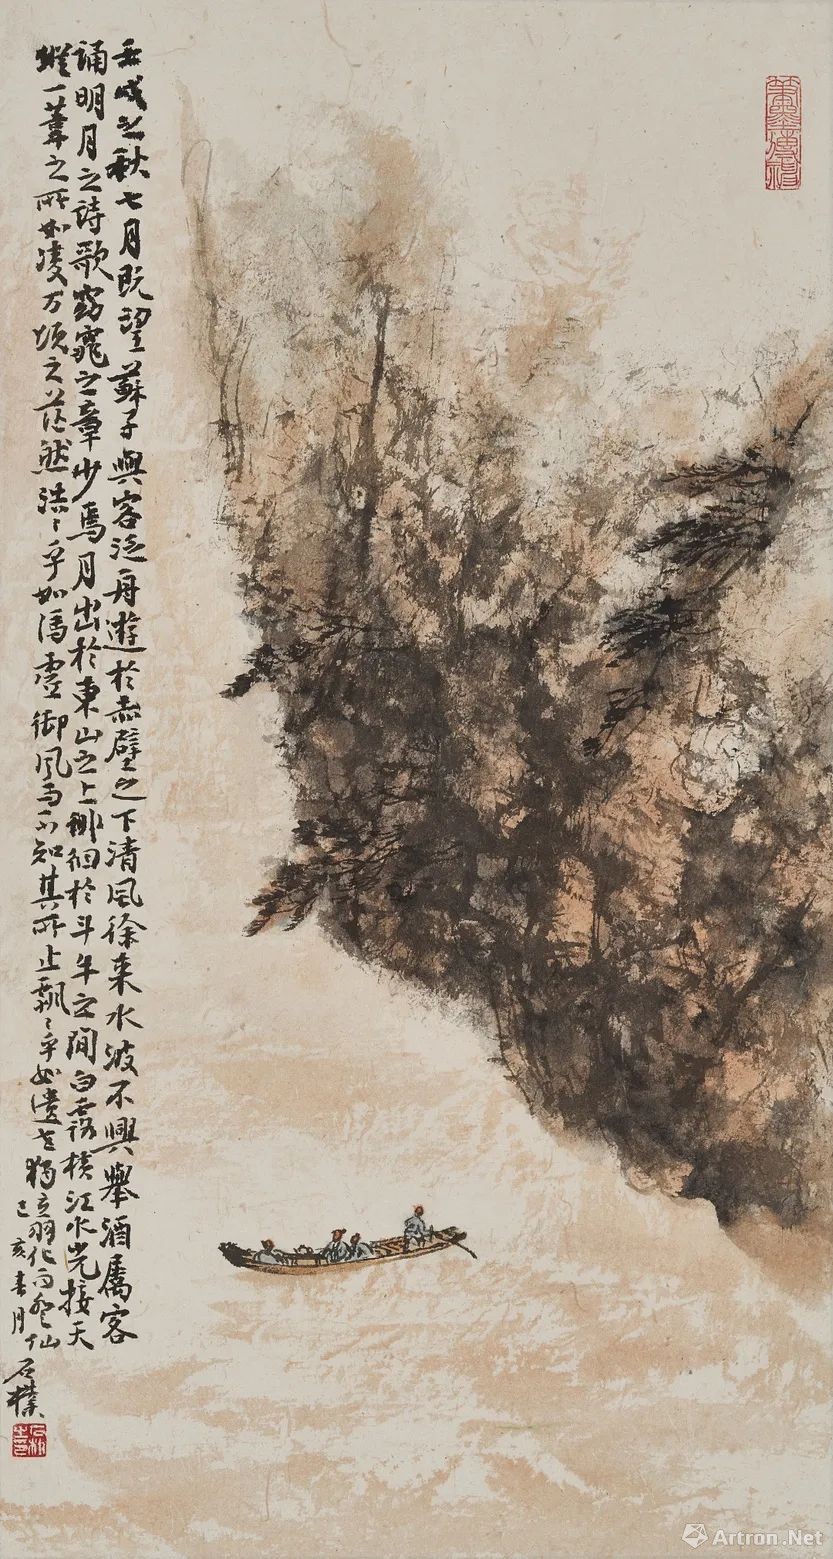 壬戌之秋七月既望蘇子與客泛舟遊於赤壁之下清風徐来水波不興舉酒屬客
誦明月之詩歌窈窕之章少焉月出於東山之上徘徊於斗牛之間白露橫江水光接天
縱一葦之所如凌万頃之茫然浩〻乎如馮虛御風而不知其所止飄〻乎如遺世獨立羽化而登仙
己亥春月
石樸
Artron.Net